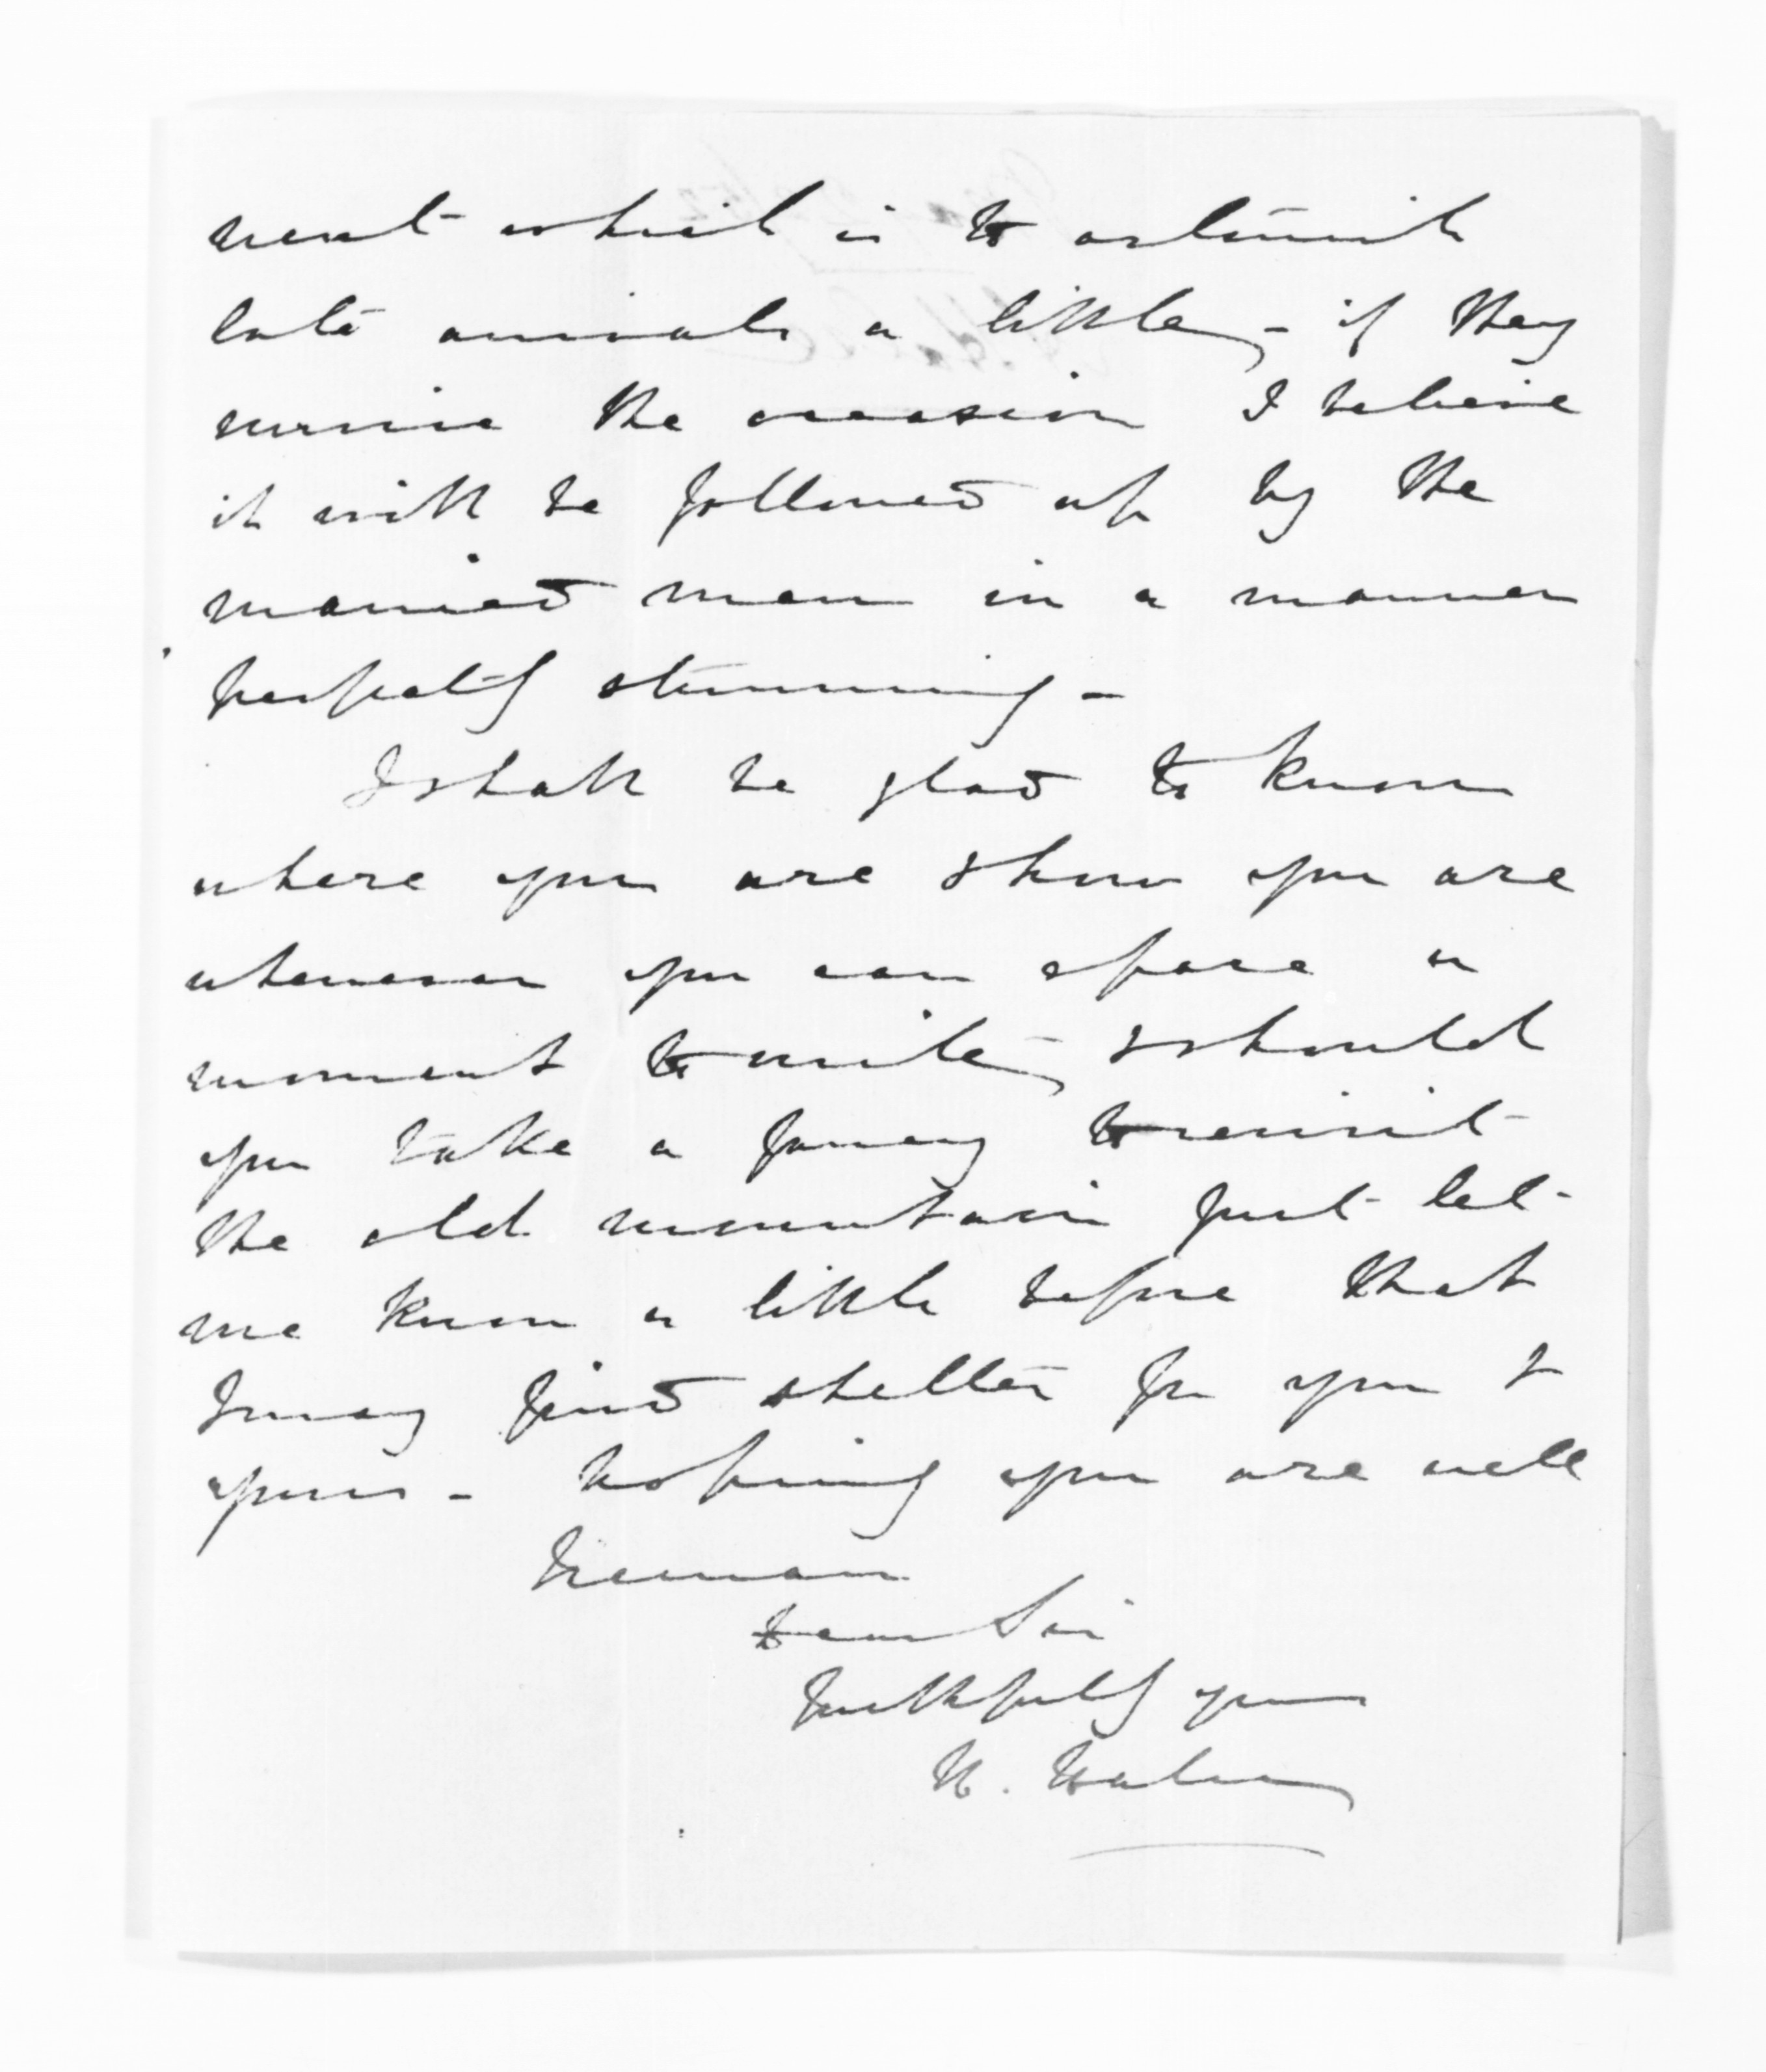 ment which is to astonish
late arrivals a little, - if they
survive the occasion I believe
it will be followed up by the
married men in a manner
perfectly stunning -
I shall be glad to know
where you are & how you are
whenever you can spare a
moment to write, & should
you take a fancy to revisit
the old mountain just let
me know a little before that
I may find shelter for you &
yours - Hoping you are well
I remain
Dear Sir
Faithfully yours